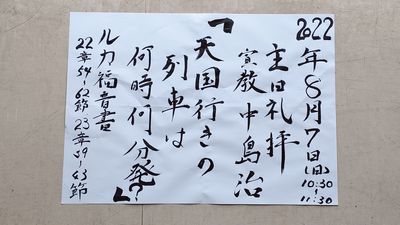 2022年8月7日(日)
10:30〜11:30
主日礼拝
宣教 中島治
「天国行きの
列車は
何時何分発?」
ルカ福音書
22章54-62節 23章39-43節